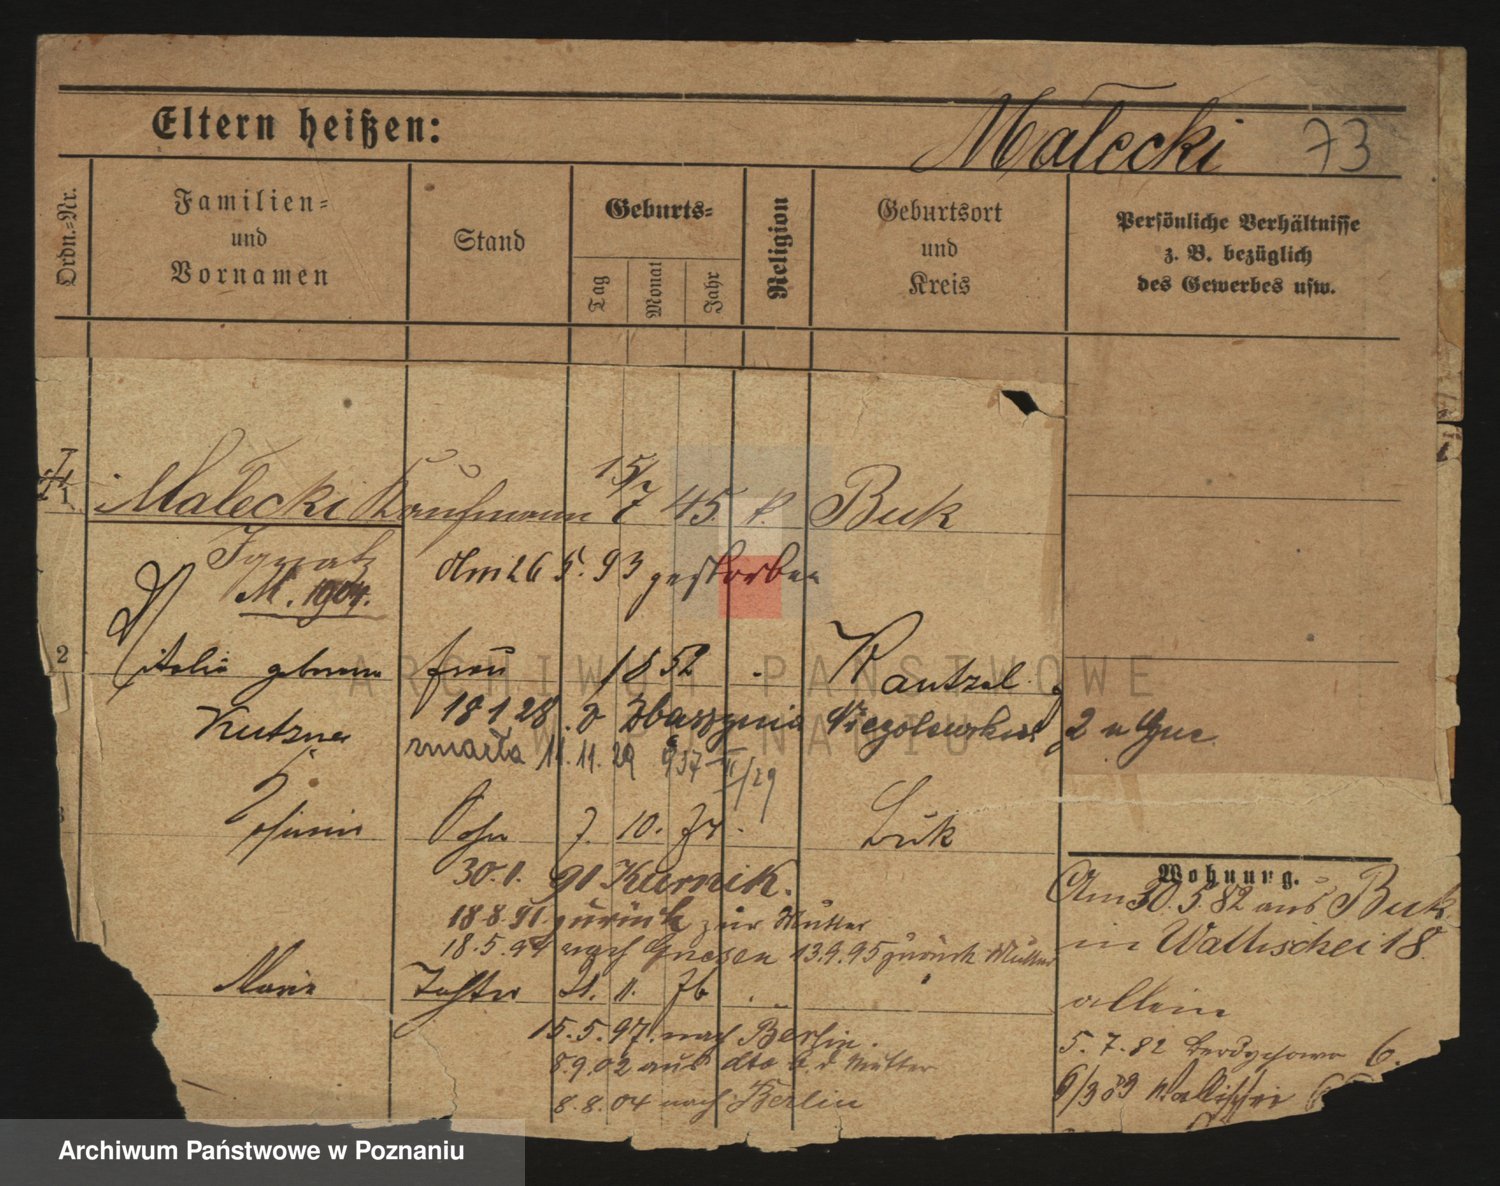 Eltern heißen:
Małecki 73
Ordn.-Nr.
Familien-
und
Vornamen
Stand
Geburts-
Tag
Monat
Jahr
Religion
Geburtsort
und
Kreis
Persönliche Verhältnisse
z. B. bezüglich
des Gewerbes usw.
1 Małecki Kaufmann 15/7 45. k. Buk
Ignatz
Am 26 5. 93 gestorben
M. 1904.
2 geborene Frau 1852 Kantzel
Kutzner 18 1 28 Zbaszynia
zmarła 11. 11. 29
Sohn 7. 10. 74. Buk
30.1. 91 Kurnik.
18.8.91 zurück zur Mutter
18.5.94 nach Gnesen 13.9.95 zurück Mutter
Marie Tochter 21. 11. 76
15.5.97. nach Berlin.
8.9.02 aus dto b. d. Mutter
8.8.04 nach Berlin
Wohnung.
Am 30.5.82 aus Buk
in Wallischei 18.
allein
5.7.82 6.
Wallischei
ARCHIWUM PAŃSTWOWE
W POZNANIU
Archiwum Państwowe w Poznaniu